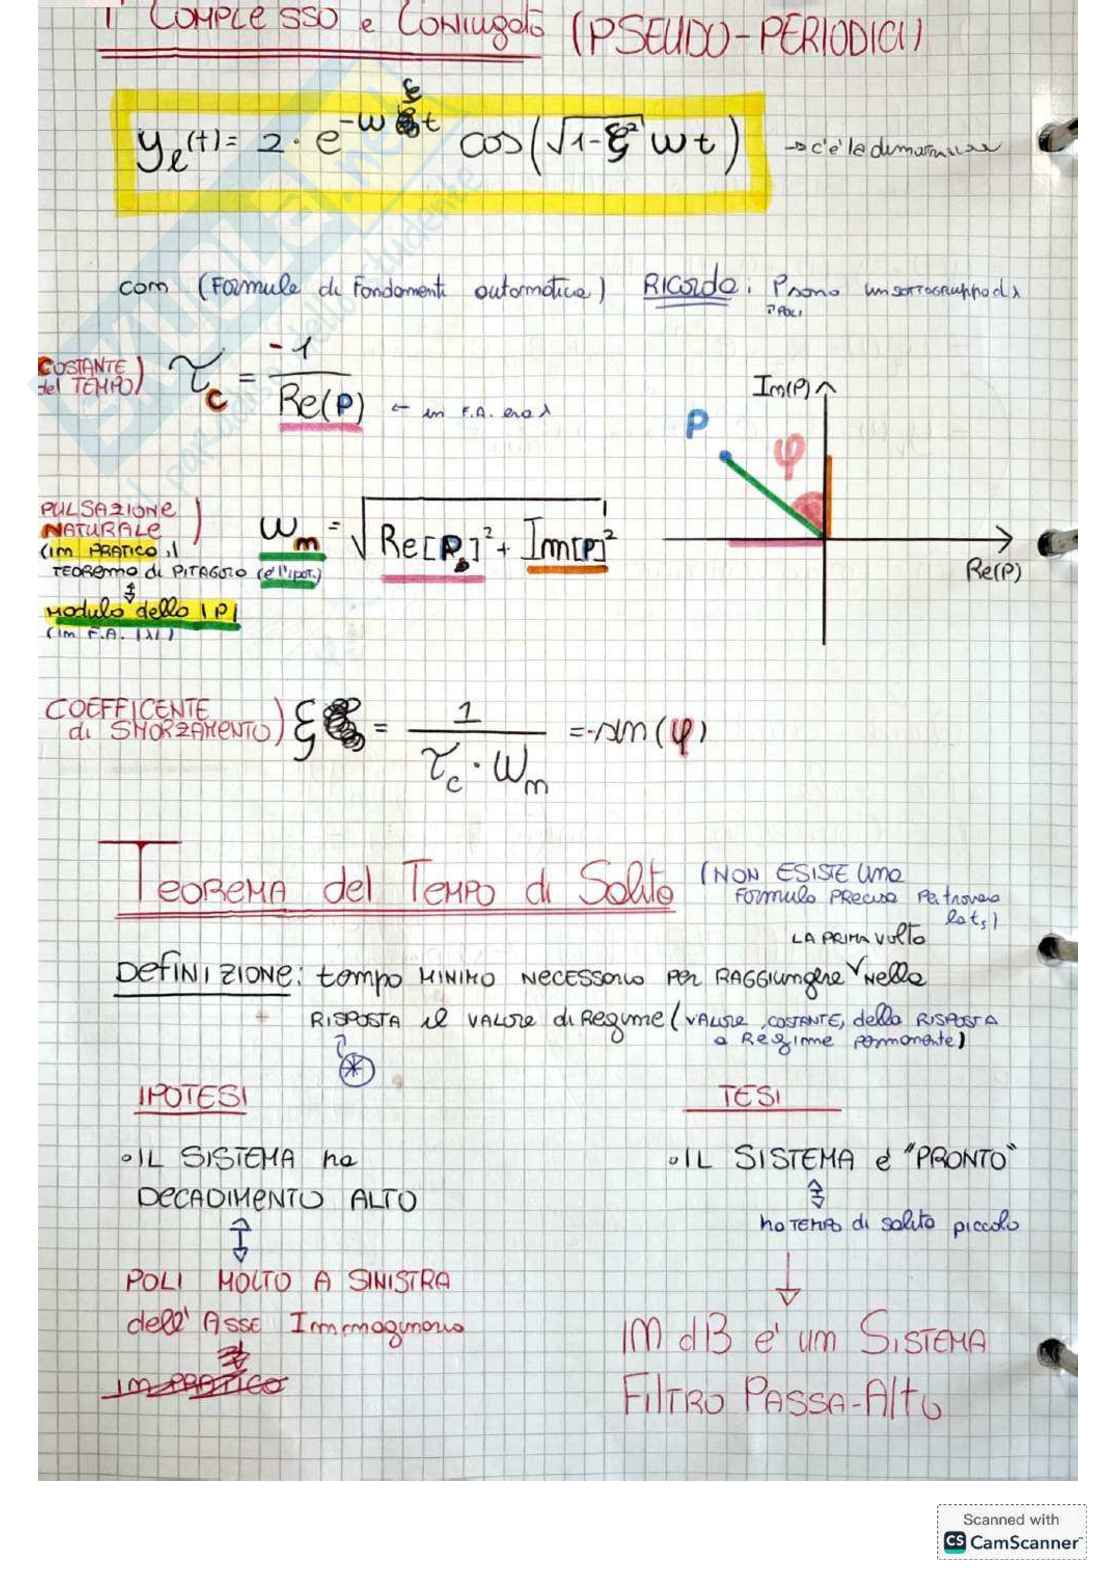 1° COMPLESSO e CONIUGATO (PSEUDO-PERIODICI)
yℓ(t) = 2 · e^{-ωξt} cos(√(1-ξ²) ωt) → c'è la dimostrazione
con (Formule di Fondamenti automatica) RICORDO: P sono un sottogruppo di λ
↑ POLI
COSTANTE del TEMPO) τc = -1 / Re(P) ← in F.A. era λ
Im(P)
P
φ
Re(P)
PULSAZIONE
NATURALE) ωn = √(Re[P]² + Im[P]²)
(in PRATICA il
TEOREMA di PITAGORA (è l'ipot.)
⇕
Modulo dello |P|
(in F.A. |λ|)
COEFFICENTE
di SMORZAMENTO) ξ = 1 / (τc · ωn) = -sin(φ)
TEOREMA del TEMPO di Salita (NON ESISTE una
Formula PRECISA Per trovare
la ts)
LA PRIMA VOLTA
DEFINIZIONE: tempo MINIMO NECESSARIO PER RAGGIUNGERE ∨ nella
RISPOSTA il VALORE di Regime (VALORE, COSTANTE, della RISPOSTA
a Regime permanente)
IPOTESI
◦ IL SISTEMA ha
DECADIMENTO ALTO
⇕
POLI MOLTO A SINISTRA
dell'Asse Immaginario
TESI
◦ IL SISTEMA è "PRONTO"
⇕
ha TEMPO di salita piccolo
↓
IN dB è un SISTEMA
FILTRO PASSA-Alto
Scanned with
CS CamScanner